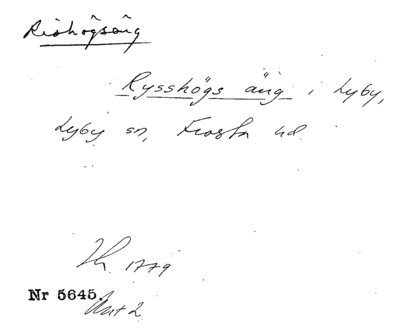 Rishögsäng
Rysshögs äng i Lyby,
Lyby sn, Frosta hd.
1779
Nr 5645.
Akt 2